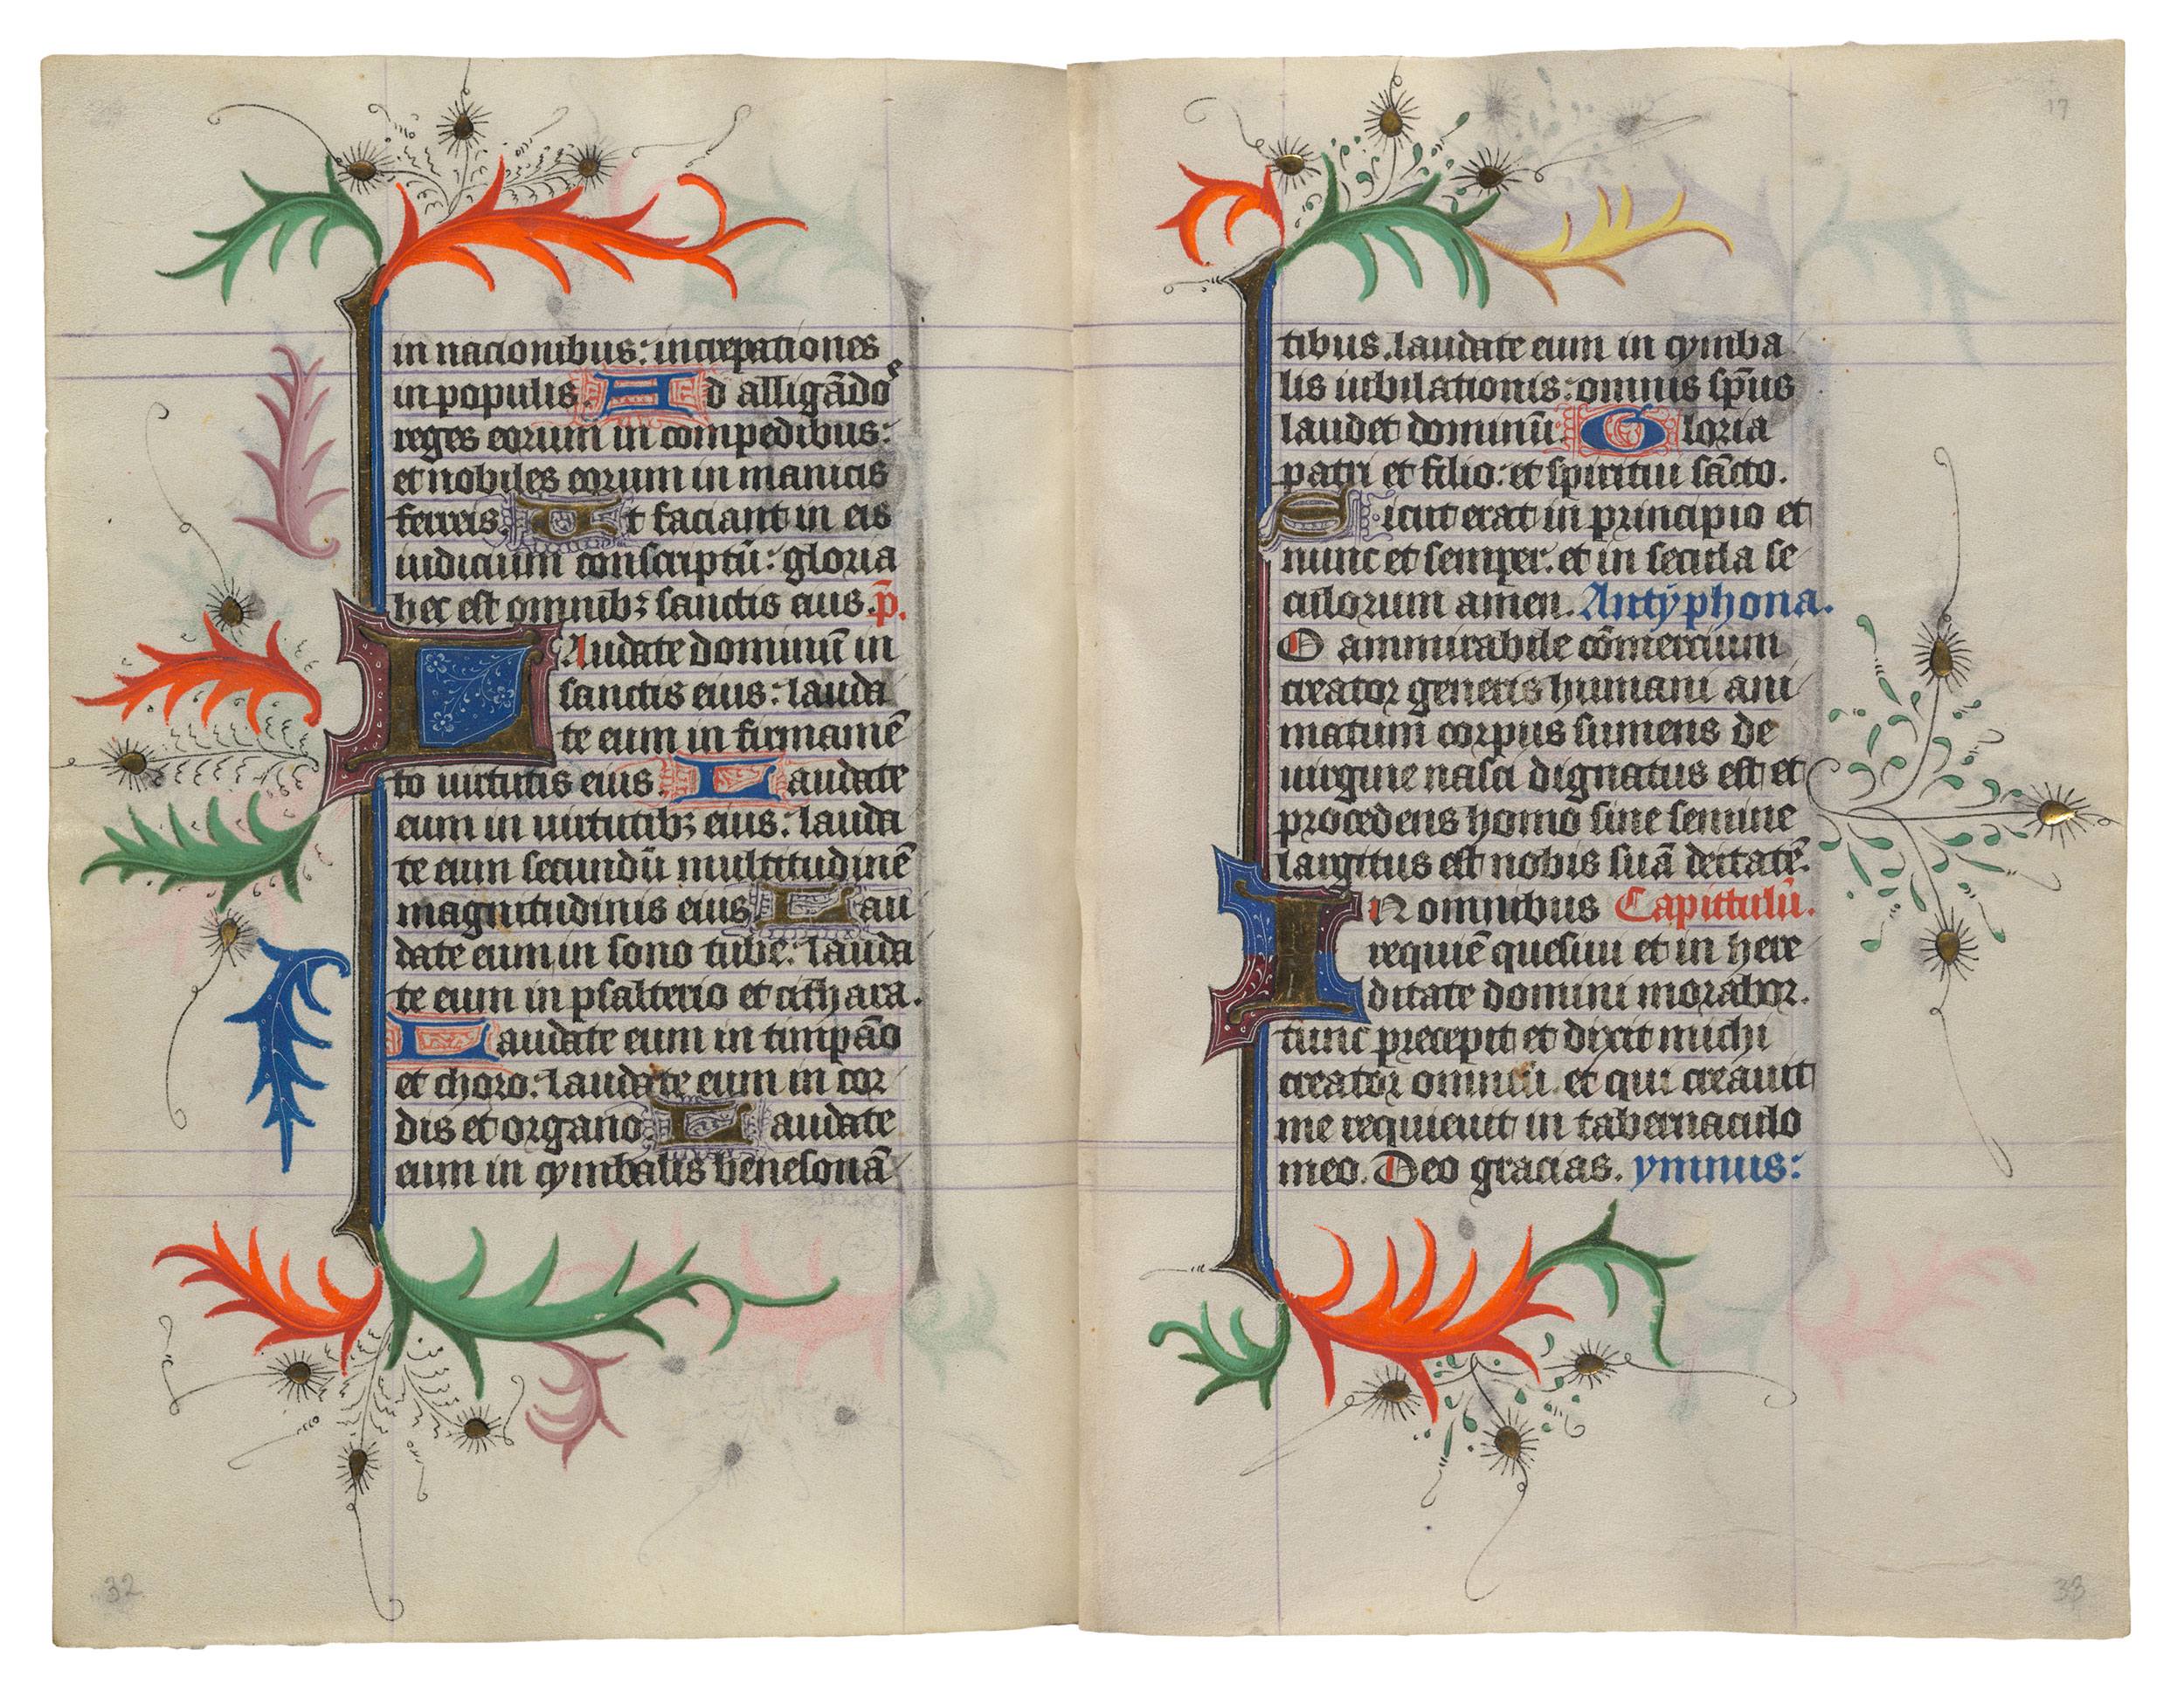 in nacionibus: increpationes
in populis. Ad alligādos
reges eorum in compedibus:
et nobiles eorum in manicis
ferreis. Ut faciant in eis
iudicium conscriptū: gloria
hec est omnibꝫ sanctis eius. p̄.
Laudate dominū in
sanctis eius: lauda
te eum in firmamē
to uirtutis eius. Laudate
eum in uirtutibꝫ eius: lauda
te eum secundū multitudinē
magnitudinis eius. Lau
date eum in sono tube: lauda
te eum in psalterio et cithara.
Laudate eum in timpāo
et choro: laudate eum in cor
dis et organo. Laudate
eum in cymbalis benesonā
32
17
tibus. laudate eum in cymba
lis iubilationis: omnis sp̄us
laudet dominū. Gloria
patri et filio: et spiritui sācto.
Sicut erat in principio et
nunc et semper: et in secula se
culorum amen. Antyphona.
O ammirabile cōmercium
creator generis humani ani
matum corpus sumens de
uirgine nasci dignatus est et
procedens homo sine semine
largitus est nobis suā deitatē.
IN omnibus Capittulū.
requiē quesiui et in here
ditate domini morabor.
tunc precepit et dixit michi
creator omniū. et qui creauit
me requieuit in tabernaculo
meo. Deo gracias. ymnus:
33